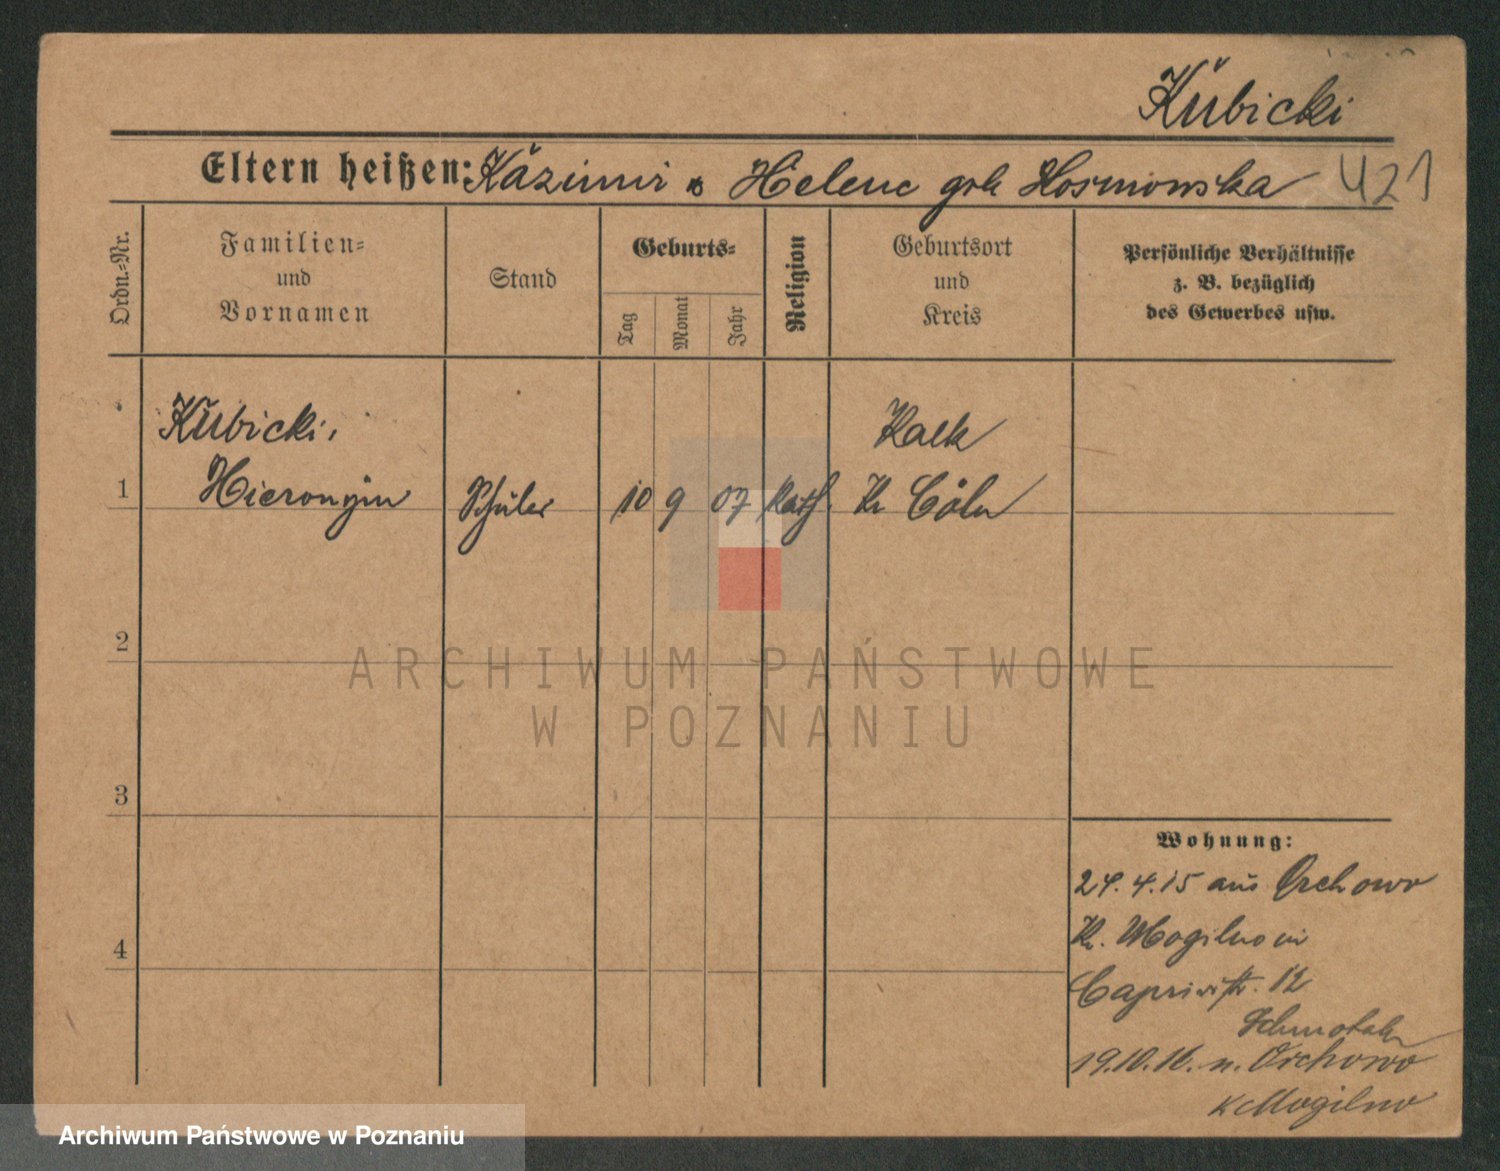 Kubicki
Eltern heißen: Kazimir u Helene geb Kosmowska
421
Ordn.-Nr.
Familien- und Vornamen
Stand
Geburts-
Tag
Monat
Jahr
Religion
Geburtsort und Kreis
Persönliche Verhältnisse
z. B. bezüglich
des Gewerbes usw.
Kubicki,
Kalk
1 Hieronym Schüler 10 9 07 kath. Kr Cöln
2
ARCHIWUM PAŃSTWOWE
W POZNANIU
3
Wohnung:
24.4.15 aus Orchowo
4
Kr. Mogilno in
Caprivistr. 12
19.10.16. n. Orchowo
K Mogilno
Archiwum Państwowe w Poznaniu